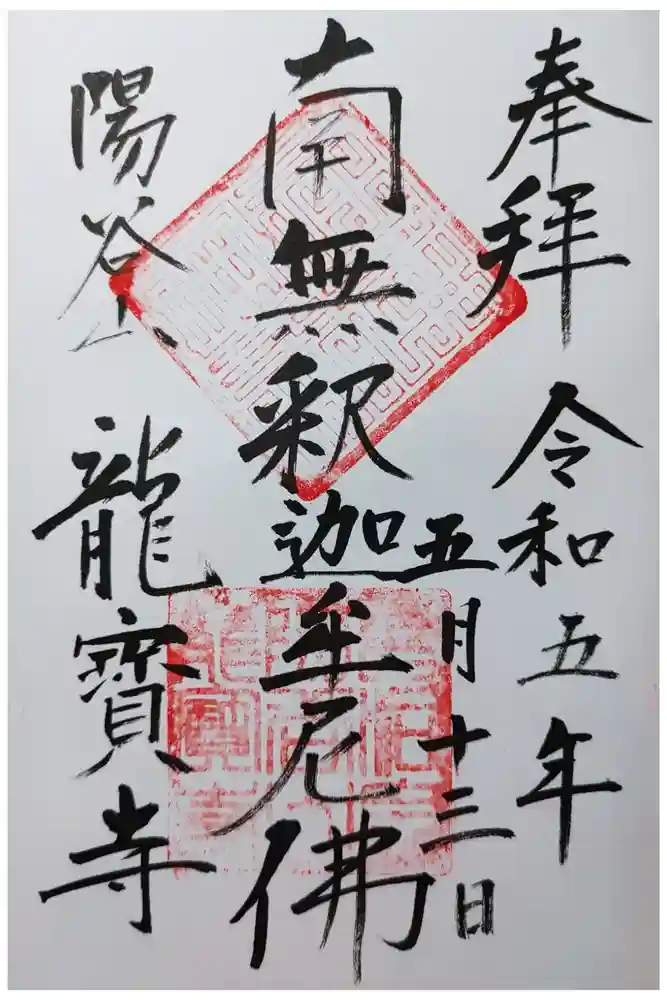 奉拝 令和五年
五月十三日
南無釈迦牟尼佛
陽谷山 龍寶寺